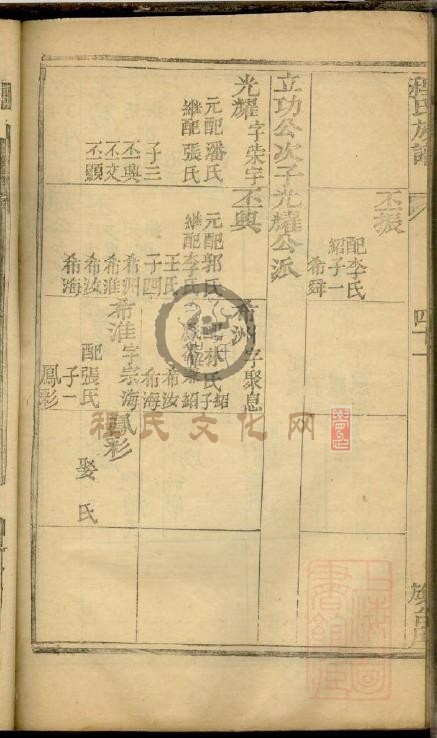 程氏族譜
四十一
丕振
配李氏
紹子一
希舜
立功公次子光耀公派
光耀 字榮宇
元配潘氏
繼配張氏
子三
丕興
丕文
丕顯
丕興
元配郭氏
繼配李氏
王氏
子四
希洲
希淮
希汝
希海
希洲 字聚息
林氏
子紹
希汝
希海
希淮 字宗海
配張氏
子一
鳳彩
鳳彩
娶 氏
程氏文化网
上海圖書館藏